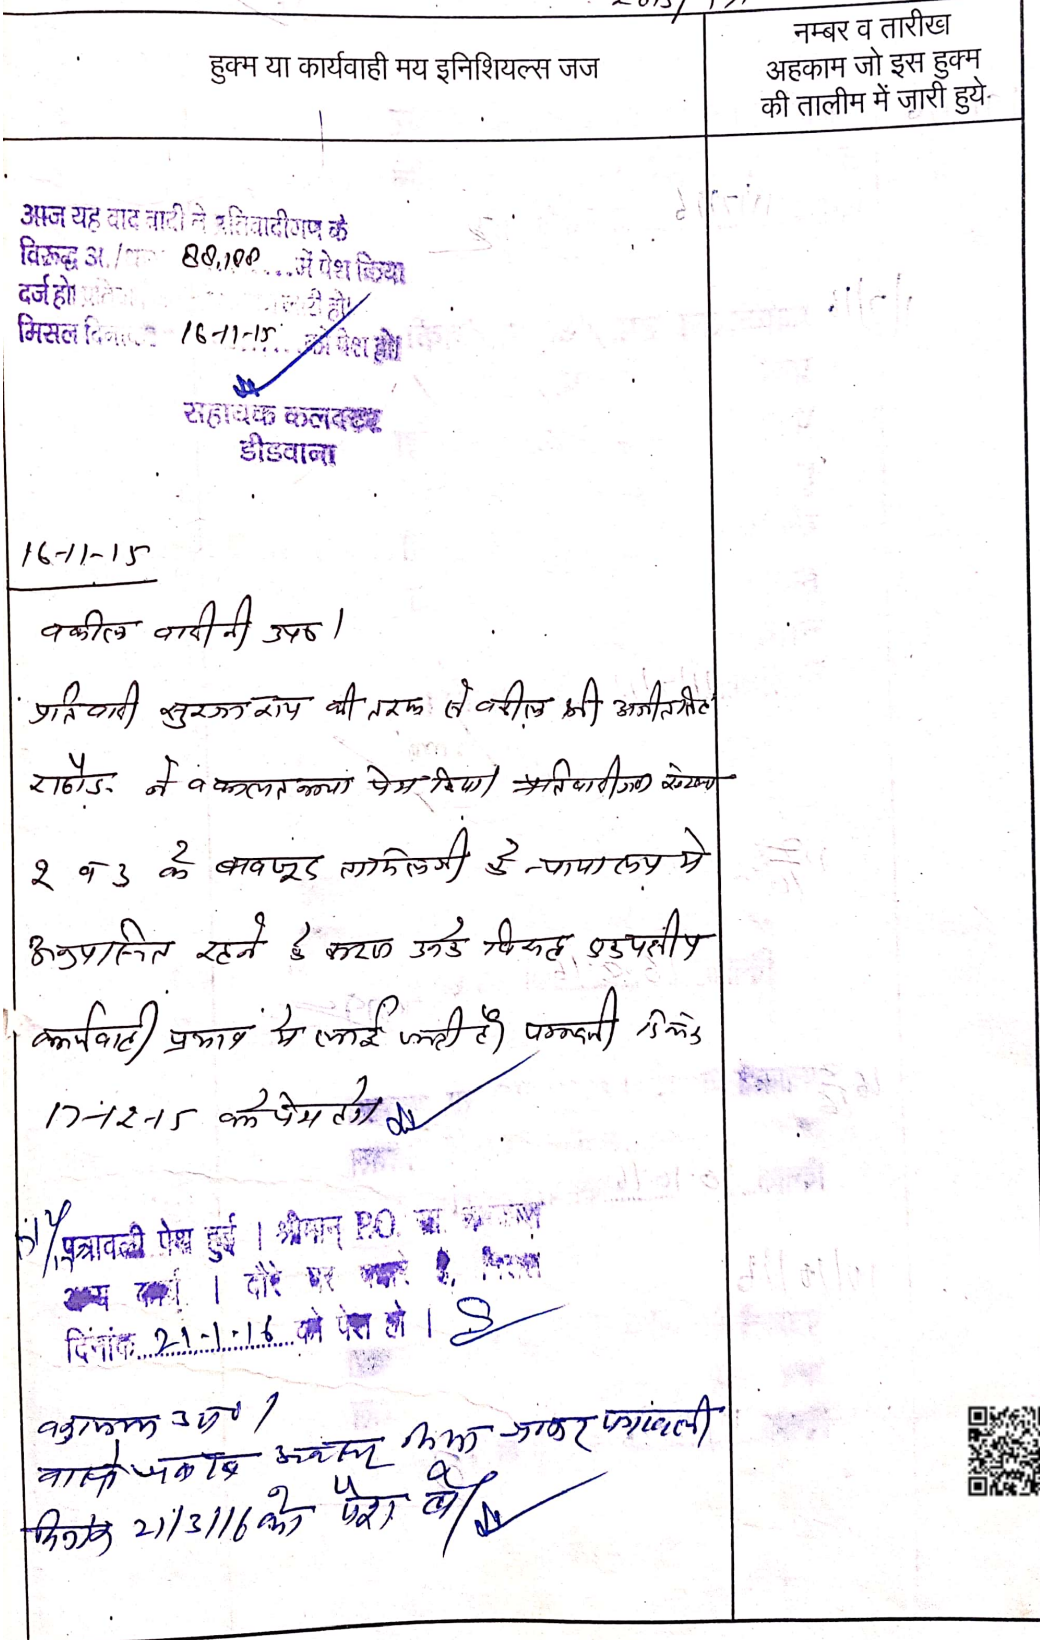 हुक्म या कार्यवाही मय इनिशियल्स जज
नम्बर व तारीख
अहकाम जो इस हुक्म
की तालीम में जारी हुये
आज यह वाद वादी ने प्रतिवादीगण के
विरूद्ध अ./ 88,188 में पेश किया
दर्ज हो जारी हो।
मिसल दिनांक 16-11-15 को पेश हो।
सहायक कलक्टर
डीडवाना
16-11-15
वकील वादीनी उप0।
प्रतिवादी सुरजाराम की तरफ से वकील श्री अजीतसिंह
राठौड़ ने वकालतनामा पेश किया। प्रतिवादीगण संख्या
2 व 3 के बावजूद तामिलगी के न्यायालय मे
अनुपस्थित रहने के कारण उनके विरूद्ध एकपक्षीय
कार्यवाही प्रकरण मे लाई जाती है। पत्रावली दिनांक
17-12-15 को पेश हो।
पत्रावली पेश हुई । श्रीमान् P.O. सा
अन्य कार्य । दौरे पर पधारे है, मिसल
दिनांक 21-1-16 को पेश हो ।
वकुलाय उप0।
वास्ते जवाब अवसर दिया जाकर पत्रावली
दिनांक 21/3/16 को पेश हो।